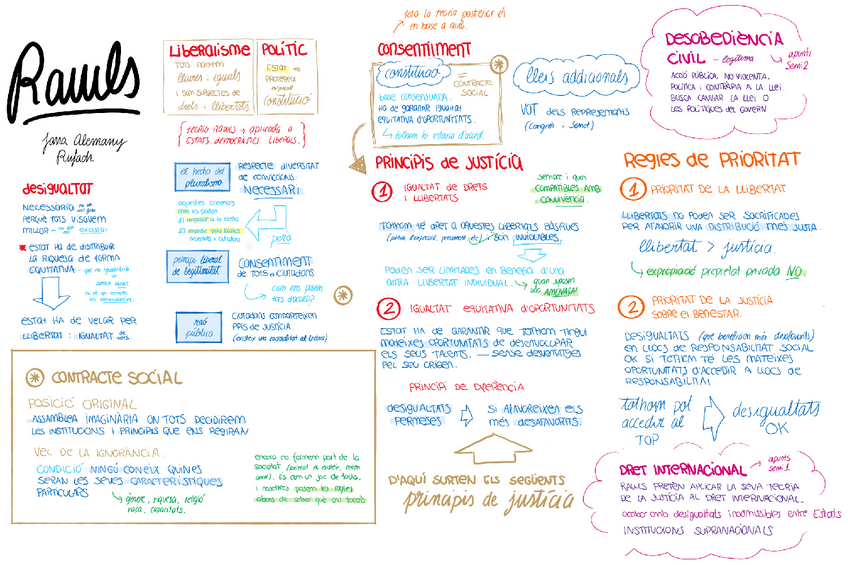 Rawls
Jana Alemany
Pujadh
desigualtat
NECESSÀRIA
PERQUÈ TOTS VISQUEM
MILLOR
* ESTAT HA DE DISTRIBUIR
LA RIQUESA DE FORMA
EQUITATIVA
ESTAT HA DE VELAR PER
LLIBERTAT i IGUALTAT de tots.
LIBERALISME
TOTS NAIXEM
lliures i iguals
I SOM SUBJECTES DE
drets i llibertats
POLÍTIC
ESTAT ha
PROTEGEIX
constitució
[TEORIA RAWLS → aplicada a
ESTATS DEMOCRÀTICS LIBERALS.]
el fet del
pluralisme
RESPECTE DIVERSITAT
DE CONVICCIONS.
NECESSARI
aquestes creences
però
principi liberal
de legitimitat
CONSENTIMENT
DE TOTS els CIUTADANS
com ens posem
tots d'acord?
raó
pública
CIUTADANS COMPARTEIXEN
PPIS DE JUSTÍCIA.
* CONTRACTE SOCIAL
POSICIÓ ORIGINAL
ASSEMBLEA IMAGINÀRIA ON TOTS DECIDIREM
LES INSTITUCIONS I PRINCIPIS QUE ENS REGIRAN
VEL DE LA IGNORÀNCIA.
CONDICIÓ NINGÚ CONEIX QUINES
SERAN LES SEVES CARACTERÍSTIQUES
PARTICULARS
↳ gènere, riquesa, religió
raça, capacitats.
encara no formem part de la
societat
és com un joc de taula,
i nosaltres posem les regles
abans de saber què ens tocarà
tota la teoria posterior és
en base a això
CONSENTIMENT
constitució
= CONTRACTE
SOCIAL
base consensuada
HA DE GARANTIR IGUALTAT
EQUITATIVA D'OPORTUNITATS.
↳ tothom hi estaria d'acord.
lleis addicionals
VOT DELS REPRESENTANTS
(Congrés i Senat)
PRINCIPIS DE JUSTÍCIA
1 IGUALTAT DE DRETS
I LLIBERTATS
sempre i quan
COMPATIBLES AMB
CONVIVÈNCIA.
TOTHOM TÉ DRET A AQUESTES LLIBERTATS BÀSIQUES
i són INVIOLABLES.
PODEN SER LIMITADES EN BENEFICI D'UNA
ALTRA LLIBERTAT INDIVIDUAL.
↳ quan suposen
una AMENAÇA!
2 IGUALTAT EQUITATIVA D'OPORTUNITATS
ESTAT HA DE GARANTIR QUE TOTHOM TINGUI
MATEIXES OPORTUNITATS DE DESENVOLUPAR
ELS SEUS TALENTS. — SENSE DESAVANTATGES
PEL SEU ORIGEN.
PRINCIPI DE DIFERÈNCIA
DESIGUALTATS
PERMESES
SI AFAVOREIXEN ELS
MÉS DESAFAVORITS
D'AQUÍ SURTEN ELS SEGÜENTS
principis de justícia
DESOBEDIÈNCIA
CIVIL – legítima → apunts
Semi 2
ACCIÓ PÚBLICA, NO VIOLENTA,
POLÍTICA i CONTRÀRIA A LA LLEI.
BUSCA CANVIAR LA LLEI O
LES POLÍTIQUES DEL GOVERN
REGLES DE PRIORITAT
1 PRIORITAT DE LA LLIBERTAT
LLIBERTATS NO PODEN SER SACRIFICADES
PER AFAVORIR UNA DISTRIBUCIÓ MÉS JUSTA.
llibertat > justícia
↳ expropiació propietat privada NO
2 PRIORITAT DE LA JUSTÍCIA
SOBRE EL BENESTAR.
DESIGUALTATS (que beneficien més desafavorits)
EN LLOCS DE RESPONSABILITAT SOCIAL
OK SI TOTHOM TÉ LES MATEIXES
OPORTUNITATS D'ACCEDIR A LLOCS DE
RESPONSABILITAT
tothom pot
accedir al
TOP
desigualtats
OK
DRET INTERNACIONAL → apunts
semi 1
RAWLS PRETÉN APLICAR LA SEVA TEORIA
DE LA JUSTÍCIA AL DRET INTERNACIONAL.
acabar amb desigualtats inadmissibles entre Estats
INSTITUCIONS SUPRANACIONALS